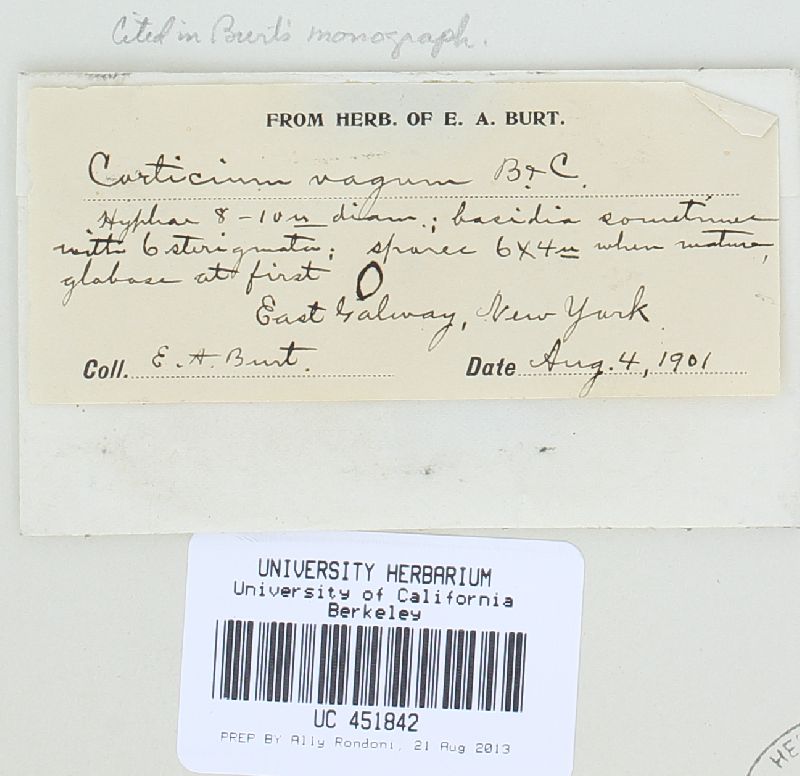 Cited in Burt's monograph.
FROM HERB. OF E. A. BURT.
Corticium vagum B & C.
Hyphae 8-10 u diam.; basidia sometimes
with 6 sterigmata; spores 6X4u when mature,
globose at first
East Galway, New York
Coll. E. A. Burt. Date Aug. 4, 1901
UNIVERSITY HERBARIUM
University of California
Berkeley
UC 451842
PREP BY Ally Rondoni, 21 Aug 2013
HE